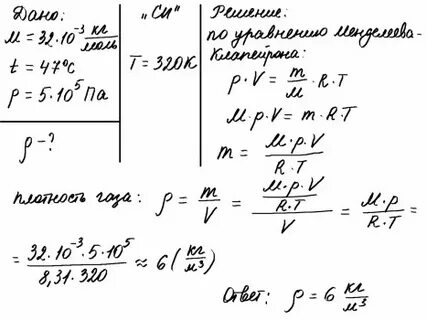 Дано:
М = 32·10⁻³ кг/моль
t = 47°C
p = 5·10⁵ Па
ρ - ?
"СИ"
T = 320K
Решение:
по уравнению Менделеева-
Клапейрона:
p·V = m/M · R·T
M·p·V = m·R·T
m = M·p·V / R·T
плотность газа: ρ = m/V = (M·p·V / R·T) / V = M·p / R·T =
= 32·10⁻³·5·10⁵ / 8,31·320 ≈ 6 (кг/м³)
Ответ: ρ = 6 кг/м³